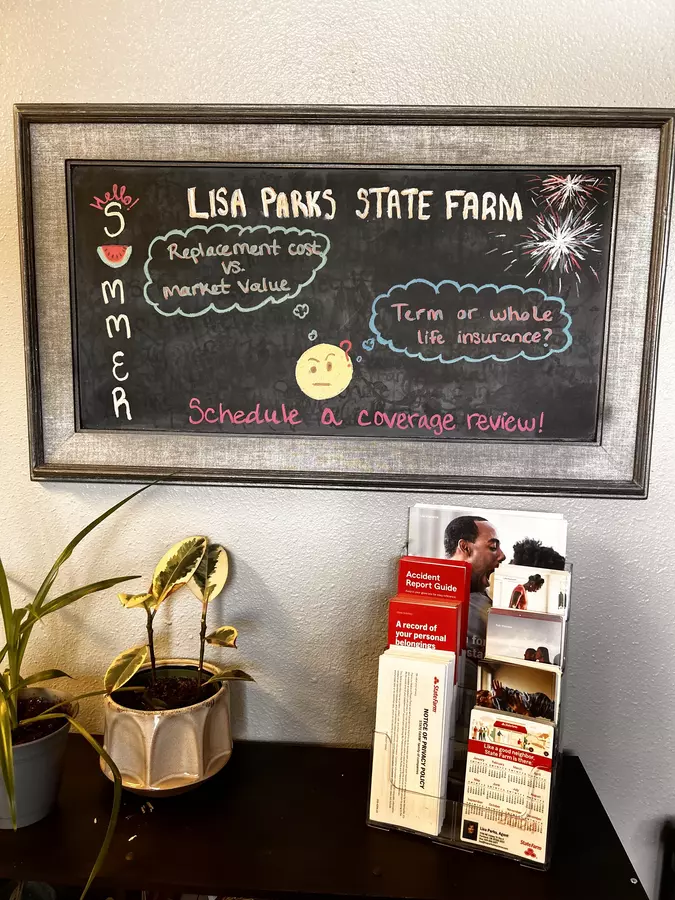 Hello!
SUMMER
LISA PARKS STATE FARM
Replacement cost
vs.
market value
Term or whole
life insurance?
?
Schedule a coverage review!
Accident
Report Guide
A record of
your personal
belongings
StateFarm
NOTICE OF PRIVACY POLICY
Like a good neighbor,
State Farm is there.
Lisa Parks, Agent
StateFarm